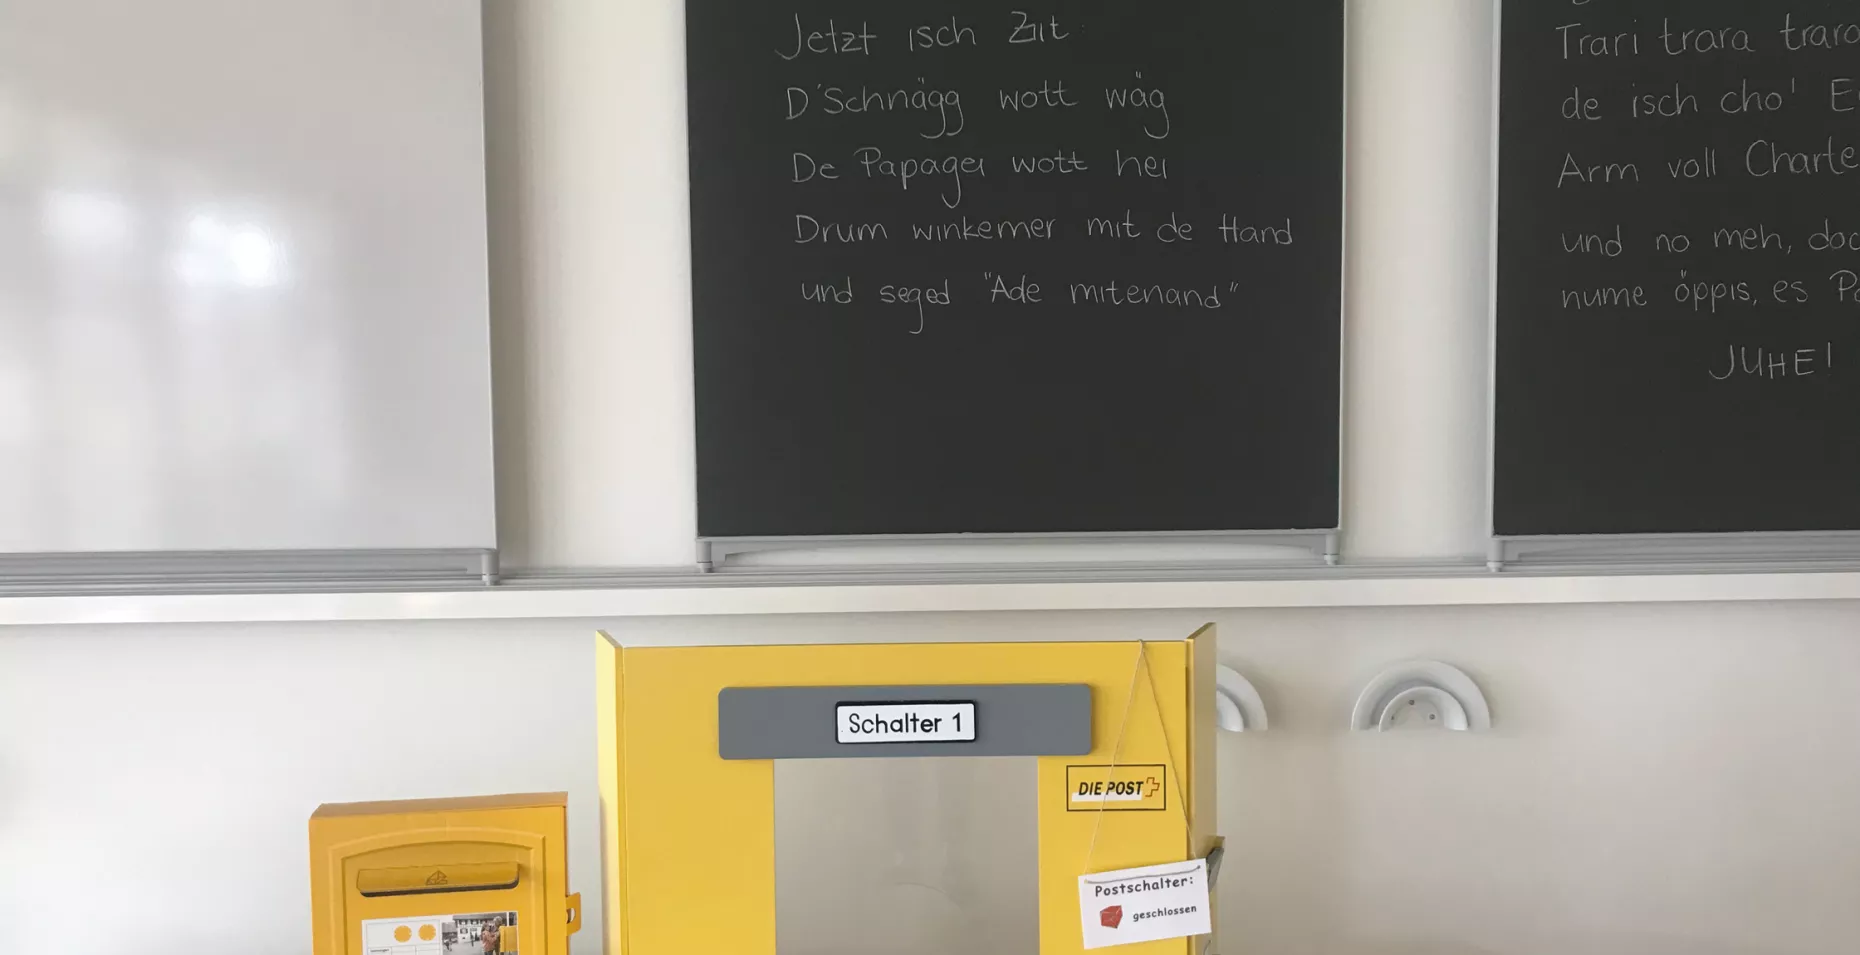 Jetzt isch Ziit
D'Schnägg wott wäg
De Papagei wott hei
Drum winkemer mit de Hand
und seged "Ade mitenand"
Trari trara
de isch cho'
Arm voll Charte
und no meh,
nume öppis, es
JUHE!
Schalter 1
DIE POST
Postschalter:
geschlossen